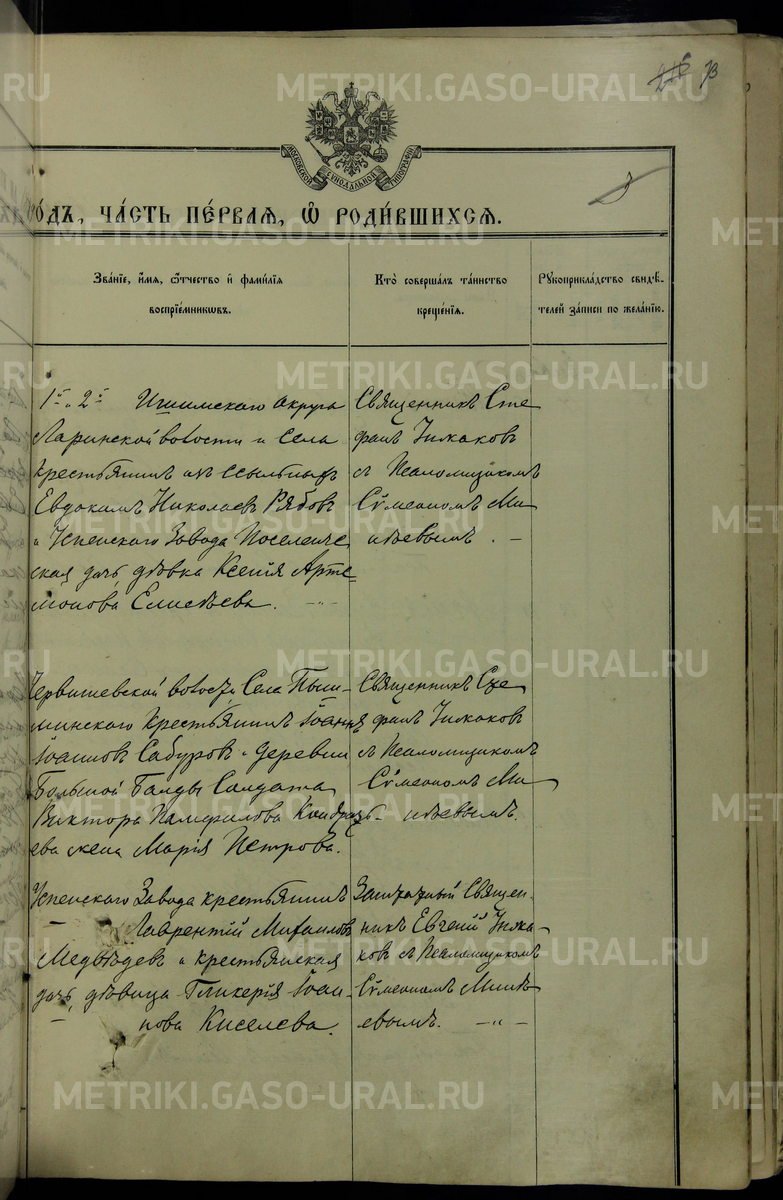 73
МОСКОВСКОЙ СѴНОДАЛЬНОЙ ТИПОГРАФІИ
3
ГО́ДЪ, ЧА́СТЬ ПЕ́РВАѦ, Ѡ҆ РОДИ́ВШИХСѦ.
Зва́нїе, и҆́мѧ, ѻ҆́тчество и҆ фами́лїѧ
воспрїе́мникѡвъ.
Кто̀ соверша́лъ та́инство
креще́нїѧ.
Рꙋкоприкла́дство свидѣ́-
телей за́писи по жела́нїю.
1й и 2й Ишимскаго округа
Ларинской волости и села
крестьянинъ изъ ссыльныхъ
Евдокимъ Николаевъ Рябовъ
и Успенскаго Завода Поселенче
ская дочь, дѣвка Ксенія Арте-
монова Елисѣева.
Священникъ Сте
фанъ
съ Псаломщикомъ
Сѵмеономъ Ми
нѣевымъ. —
Червишевской волости Села Пыш-
минскаго крестьянинъ Іоаннъ
Іоанновъ Сабуровъ и деревни
Большой Балды Солдата
Виктора Памфилова Кондрать-
ева жена Марія Петрова.
Священникъ Сте
фанъ
съ Псаломщикомъ
Сѵмеономъ Ми
нѣевымъ.
Успенскаго Завода крестьянинъ
Лаврентій Михаиловъ
Медвѣдевъ и крестьянская
дочь, дѣвица Гликерія Іоан-
нова Киселева.
Заштатный Священ-
никъ Евгеній
съ Псаломщикомъ
Сѵмеономъ Минѣ
евымъ. —„—
METRIKI.GASO-URAL.RU